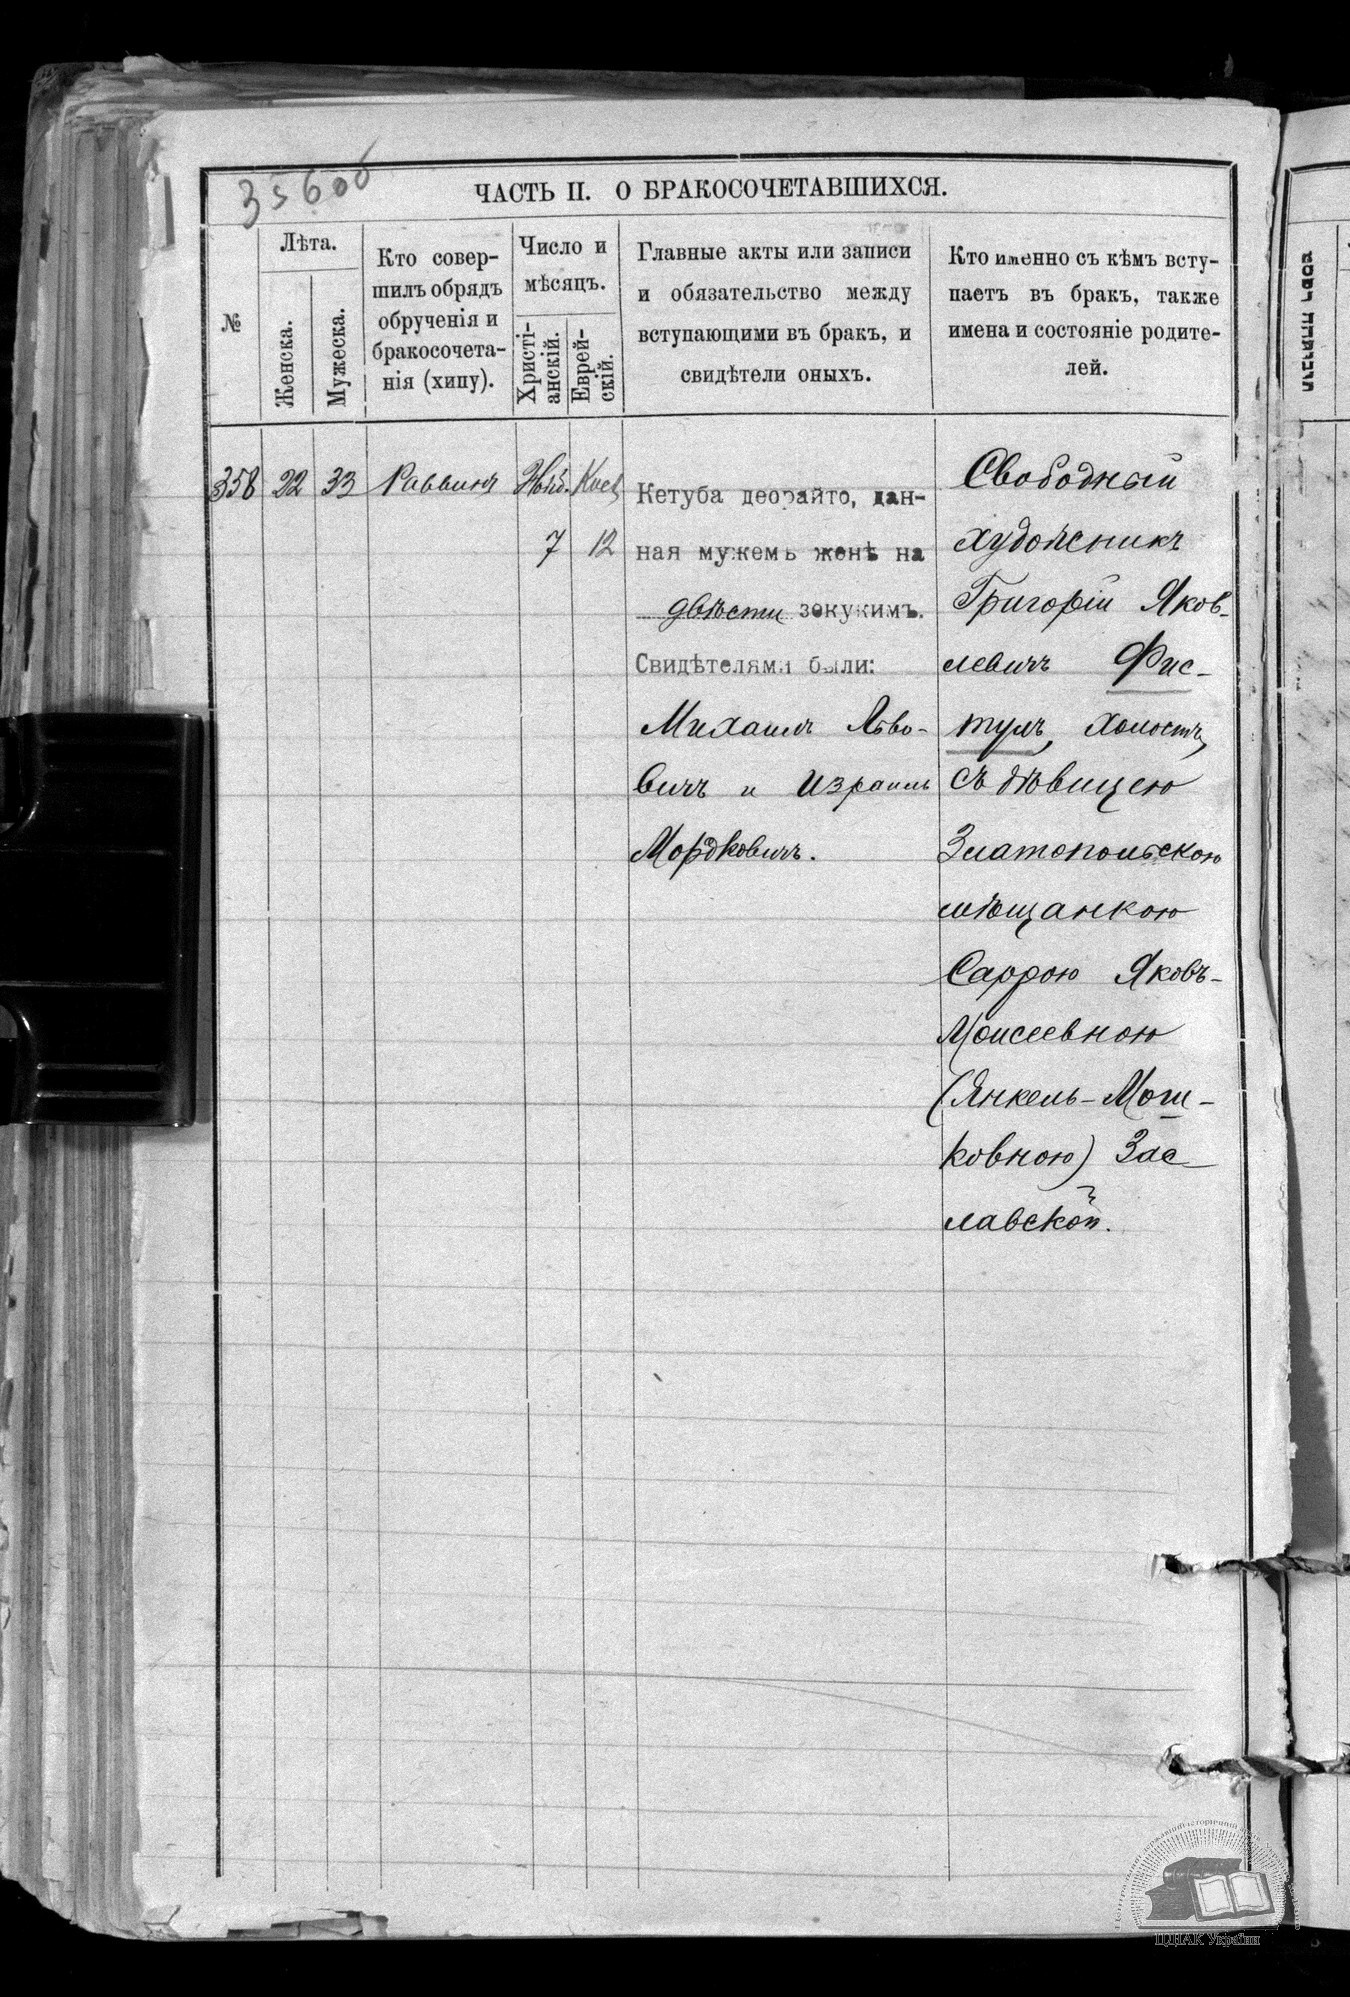 356 об
ЧАСТЬ II. О БРАКОСОЧЕТАВШИХСЯ.
№
Лѣта.
Женска.
Мужеска.
Кто совер-
шилъ обрядъ
обрученія и
бракосочета-
нія (хипу).
Число и
мѣсяцъ.
Христі-
анскій.
Еврей-
скій.
Главные акты или записи
и обязательство между
вступающими въ бракъ, и
свидѣтели оныхъ.
Кто именно съ кѣмъ всту-
паетъ въ бракъ, также
имена и состояніе родите-
лей.
358 22 33 Раввинъ
7 12
Кетуба деорайто, дан-
ная мужемъ женѣ на
двѣсти зекукимъ.
Свидѣтелями были:
Михаилъ Льво-
вичъ и Израиль
Мордковичъ.
Свободный
художникъ
Григорій Яков-
левичъ Фис-
тулъ, холостъ,
съ дѣвицею
Златопольскою
мѣщанкою
Саррою Яковъ-
Моисеевною
(Янкель-Мош-
ковною) Зас-
лавской.
ЦДІАК України